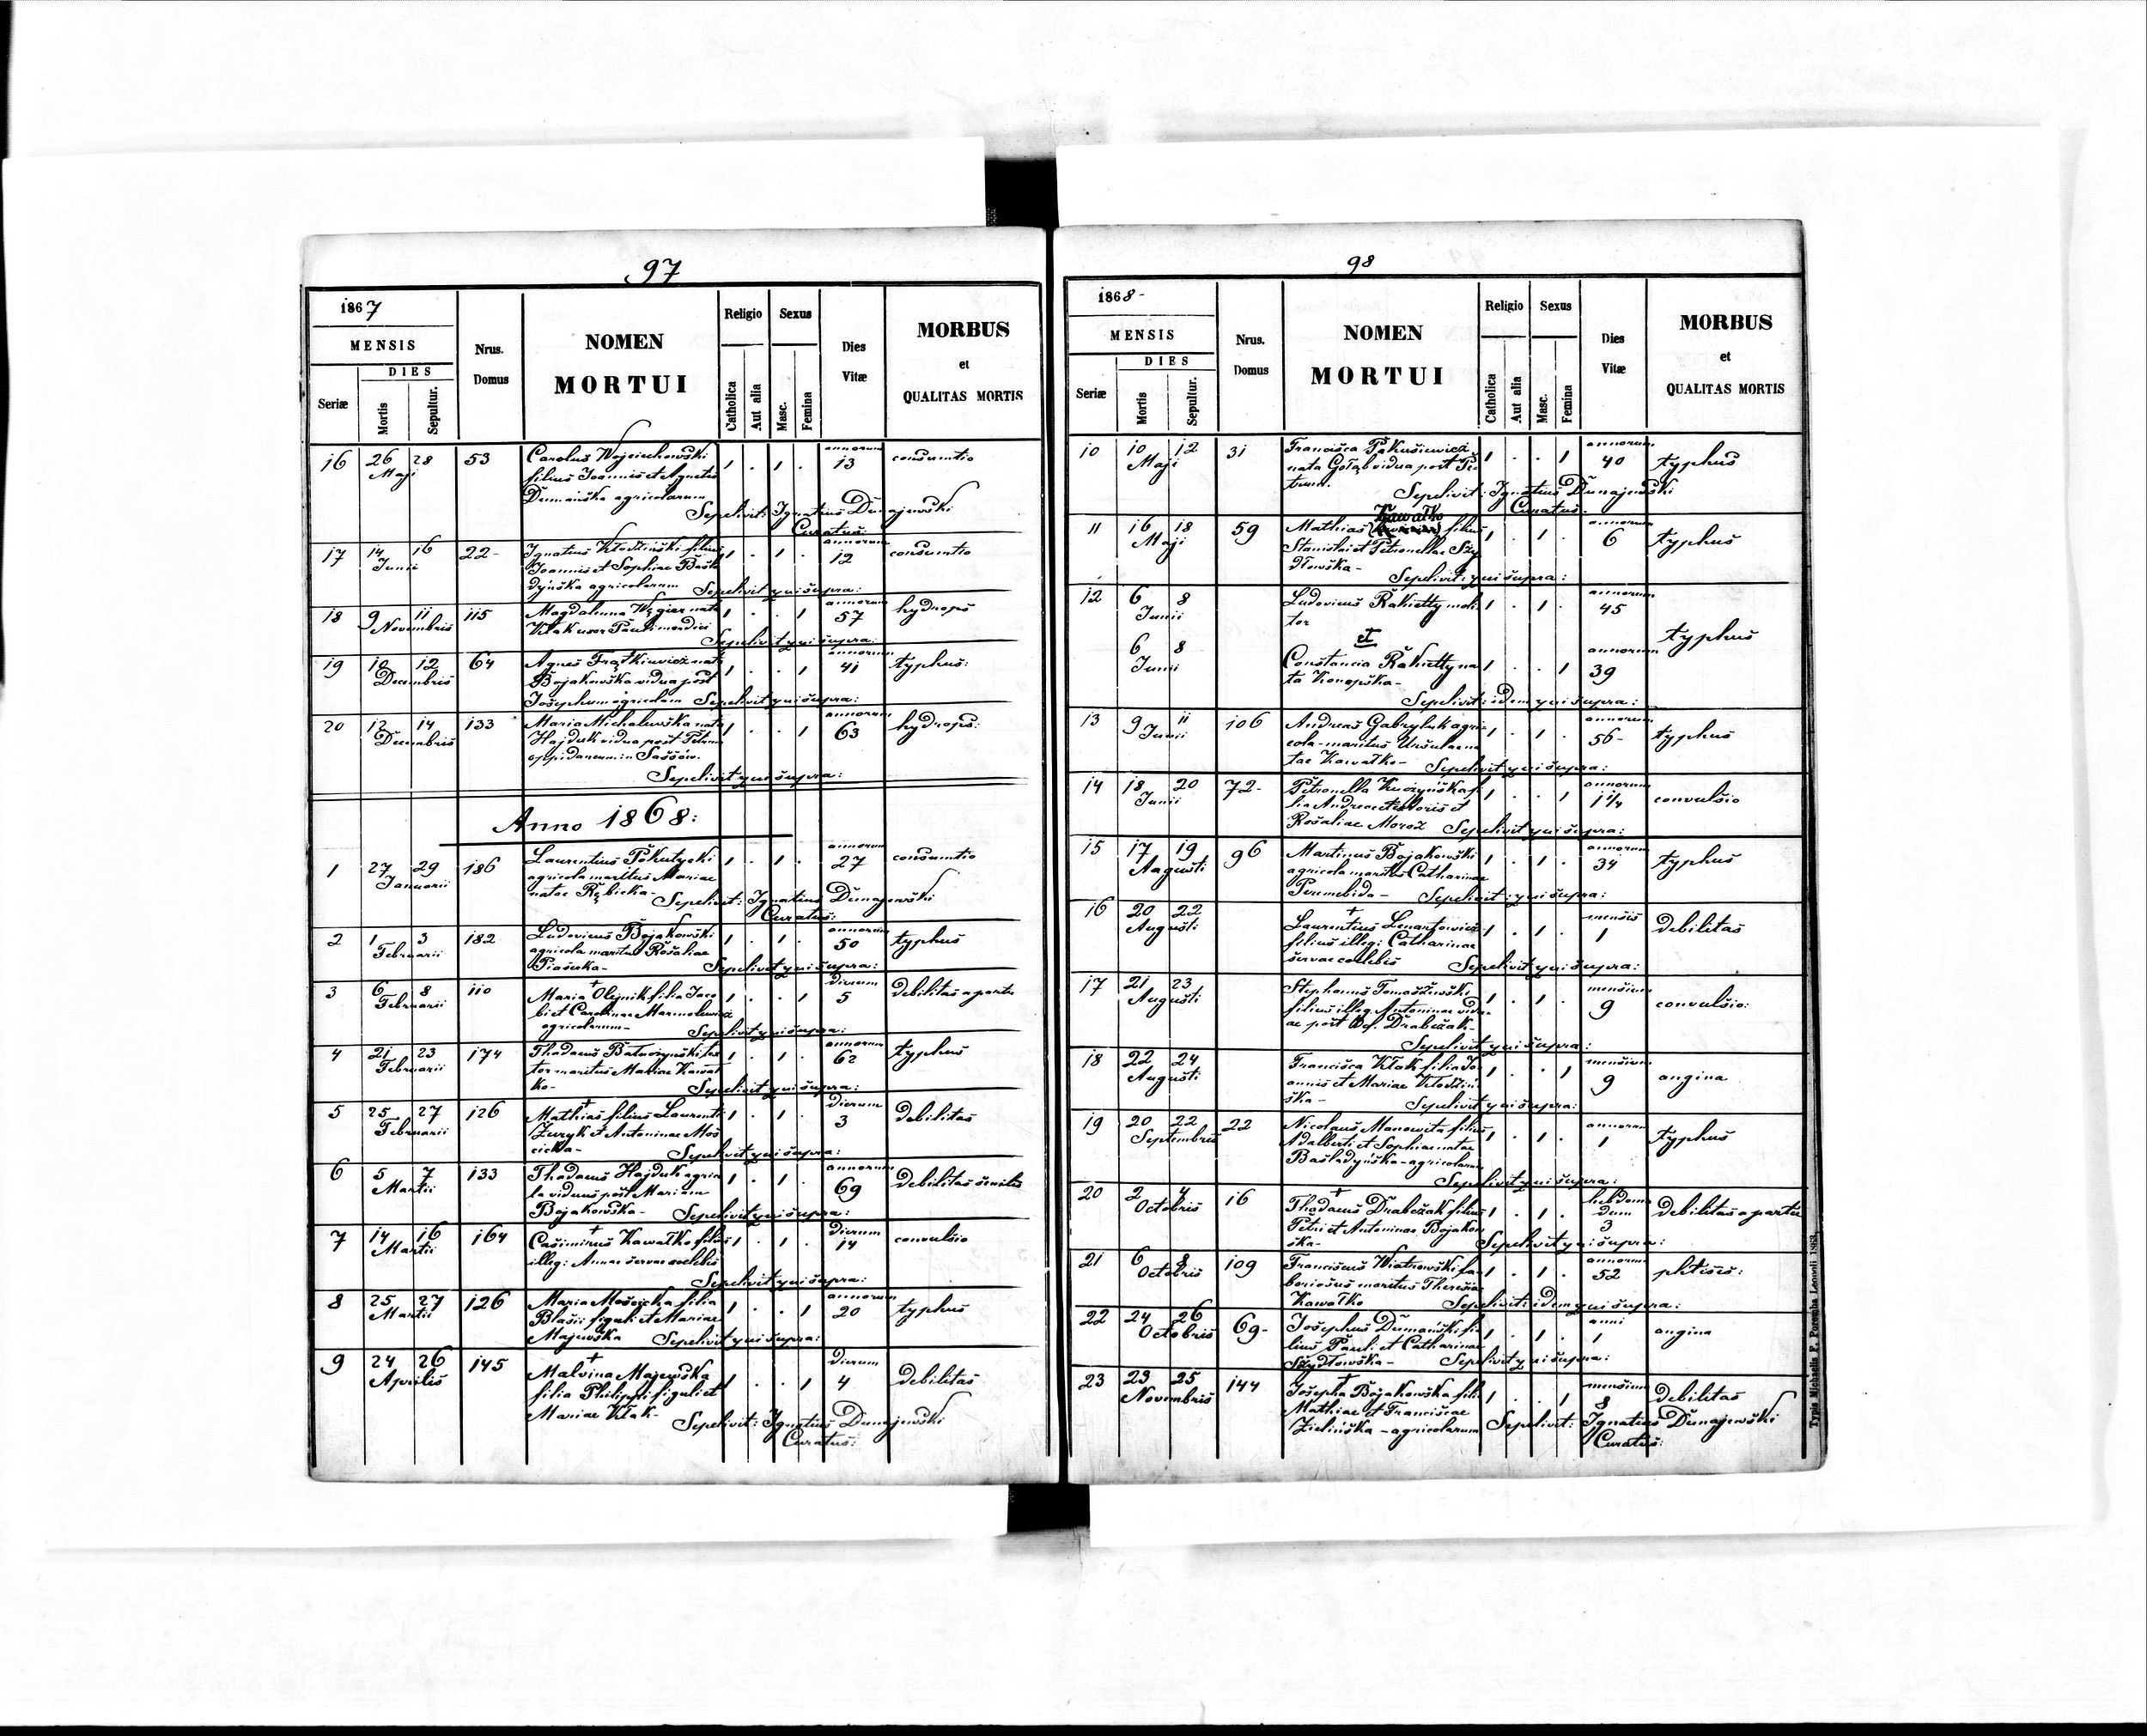 97
1867
MENSIS
DIES
Seriæ Mortis Sepultur.
Nrus. Domus
NOMEN
MORTUI
Religio Sexus
Catholica Aut alia Masc. Femina
Dies
Vitæ
MORBUS
et
QUALITAS MORTIS
16 26 28 53 Carolus Wojciechowski 1 . 1 . annorum 13 consumtio
Maji filius Joannis et Agnetis
Dumańska agricolarum
Sepelivit: Ignatius Dunajewski
Curatus:
17 14 16 22 Ignatius Kłodziński filius 1 . 1 . annorum 12 consumtio
Junii Joannis et Sophiae Basła
dyńska agricolarum Sepelivit qui supra:
18 9 11 115 Magdalenna Węgier nata 1 . . 1 annorum 57 hydrops
Novembris Kłak uxor Pauli mendici
Sepelivit qui supra:
19 10 12 64 Agnes Frątkiewicz nata 1 . . 1 annorum 41 typhus:
Decembris Bojakowska vidua post
Josephum agricolam Sepelivit qui supra:
20 12 14 133 Maria Michalewska nata 1 . . 1 annorum 63 hydrops:
Decembris Hajduk vidua post Petrum
oppidaneum in Sassów.
Sepelivit qui supra:
Anno 1868:
1 27 29 186 Laurentius Pokutycki 1 . 1 . annorum 27 consumtio
Januarii agricola maritus Mariae
natae Rębicka - Sepelivit: Ignatius Dunajewski
Curatus:
2 1 3 182 Ludovicus Bojakowski 1 . 1 . annorum 50 typhus
Februarii agricola maritus Rosaliae
Piaserka - Sepelivit qui supra:
3 6 8 110 Maria Olejnik filia Jaco 1 . . 1 dierum 5 debilitas a partu
Februarii bi et Carolinae Marmolewicz
agricolarum - Sepelivit qui supra:
4 21 23 174 Thadaeus Batuszyński tex 1 . 1 . annorum 62 typhus
Februarii tor maritus Mariae Kawał
ko - Sepelivit qui supra:
5 25 27 126 Mathias filius Laurenti 1 . 1 . Dierum 3 debilitas
Februarii Zuryk et Antoninae Moś
cicka - Sepelivit qui supra:
6 5 7 133 Thadaeus Hajduk agrico 1 . 1 . annorum 69 debilitas senilis
Martii la viduus post Mariam
Bojakowska - Sepelivit qui supra:
7 14 16 164 Casimirus Kawałko filius 1 . 1 . Dierum 14 convulsio
Martii illeg: Annae servae coelebis
Sepelivit qui supra:
8 25 27 126 Maria Mościcka filia 1 . . 1 annorum 20 typhus
Martii Blasii figuli et Mariae
Majewska Sepelivit qui supra:
9 24 26 145 Malvina Majewska 1 . . 1 Dierum 4 debilitas
Aprilis filia Philippi figuli et
Mariae Kłak - Sepelivit: Ignatius Dunajewski
Curatus:
98
1868 -
MENSIS
DIES
Seriæ Mortis Sepultur.
Nrus.
Domus
NOMEN
MORTUI
Religio Sexus
Catholica Aut alia Masc. Femina
Dies
Vitæ
MORBUS
et
QUALITAS MORTIS
10 10 12 31 Francisca Pakusiewicz 1 . . 1 annorum 40 typhus
Maji nata Gołąb vidua post Pe
trum. Sepelivit: Ignatius Dunajewski
Curatus.
Kawałko
11 16 18 59 Mathias filius 1 . 1 . annorum 6 typhus
Maji Stanislai et Petronellae Szy
dłowska - Sepelivit: qui supra:
12 6 8 Ludovicus Rakietty moli 1 . 1 . annorum 45
Junii tor
et typhus
6 8 Constancia Rakietty na 1 . . 1 annorum 39
Junii ta Konopska -
Sepelivit: idem qui supra:
13 9 11 106 Andreas Gabryluk agri 1 . 1 . annorum 56 - typhus
Junii cola - maritus Ursulae na
tae Kawałko - Sepelivit qui supra:
14 18 20 72 - Petronella Kuczyńska fi 1 . . 1 annorum 1 1/4 convulsio
Junii lia Andreae textoris et
Rosaliae Moroz Sepelivit qui supra:
15 17 19 96 Martinus Bojakowski 1 . 1 . annorum 34 typhus
Augusti agricola maritus Catharinae
Peremebida - Sepelivit: qui supra:
16 20 22 Laurentius Lenartowicz 1 . 1 . mensis 1 debilitas
Augusti filius illeg: Catharinae
servae coelebis Sepelivit qui supra:
17 21 23 Stephanus Tomaszewski 1 . 1 . mensium 9 convulsio:
Augusti filius illeg. Antoninae vidu
ae post Drabczak -
Sepelivit qui supra:
18 22 24 Francisca Kłak filia Jo 1 . . 1 mensium 9 angina
Augusti annis et Mariae Kłodziń
ska - Sepelivit qui supra:
19 20 22 22 Nicolaus Manowita filius 1 . 1 . annorum 1 typhus
Septembris Adalberti et Sophiae natae
Basladyńska - agricolarum
Sepelivit qui supra:
20 2 4 16 Thadaeus Drabczak filius 1 . 1 . hebdoma dum 3 debilitas a partu
Octobris Petri et Antoninae Bojakow
ska - Sepelivit qui supra:
21 6 8 109 Franciscus Wiatrowski la 1 . 1 . annorum 52 phtisis:
Octobris boriosus maritus Theresiae
Kawałko Sepelivit: idem qui supra:
22 24 26 69 - Josephus Dumański fi 1 . 1 . anni 1 angina
Octobris lius Pauli et Catharinae
Szydłowska - Sepelivit qui supra:
23 23 25 144 Josepha Bojakowska fili 1 . . 1 mensium 8 debilitas
Novembris Mathiae et Franciscae
Zielińska - agricolarum Sepelivit: Ignatius Dunajewski
Curatus:
Typis Michaelis F. Poremba Leopoli 1863.